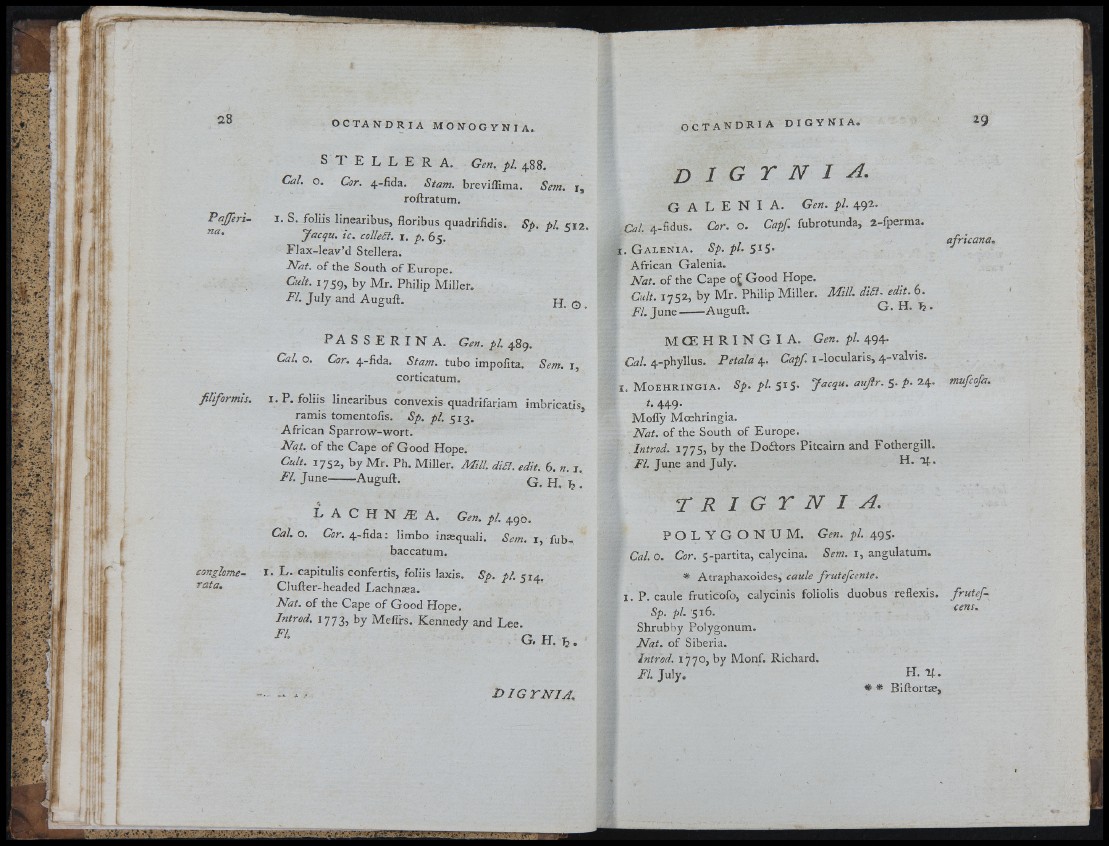 28
OCTANDRIA MONOGYNIA.
STELLERA. Gen. pl. 488.
Cal. o. Cor. 4-fida. Stam. breviſſima. Sem. 1,
roſtratum.
Paſſeri-
na.
1. S. foliis linearibus, floribus quadrifidis. Sp. pl. 512.
Jacqu. ic. collect. 1. p. 65.
Flax-leav'd Stellera.
Nat. of the South of Europe.
Cult. 1759, by Mr. Philip Miller.
Fl. July and Auguſt. H. ☉.
PASSERINA. Gen. pl. 489.
Cal. o. Cor. 4-fida. Stam. tubo impoſita. Sem. 1,
corticatum.
filiformis.
1. P. foliis linearibus convexis quadrifariam imbricatis,
ramis tomentoſis. Sp. pl. 513.
African Sparrow-wort.
Nat. of the Cape of Good Hope.
Cult. 1752, by Mr. Ph. Miller. Mill. dict. edit. 6. n. 1.
Fl. June——Auguſt. G. H. ♄.
LACHNÆA. Gen. pl. 490.
Cal. o. Cor. 4-fida: limbo inæquali. Sem. 1, ſub-
baccatum.
conglome-
rata.
1. L. capitulis confertis, foliis laxis. Sp. pl. 514.
Cluſter-headed Lachnæa.
Nat. of the Cape of Good Hope.
Introd. 1773, by Meſſrs. Kennedy and Lee.
Fl. G. H. ♄.
DIGYNIA.
OCTANDRIA DIGYNIA.
29
DIGYNIA.
GALENIA. Gen. pl. 492.
Cal. 4-fidus. Cor. o. Capſ. ſubrotunda, 2-ſperma.
africana.
1. GALENIA. Sp. pl. 515.
African Galenia.
Nat. of the Cape of Good Hope.
Cult. 1752, by Mr. Philip Miller. Mill. dict. edit. 6.
Fl. June——Auguſt. G. H. ♄.
MŒHRINGIA. Gen. pl. 494.
Cal. 4-phyllus. Petala 4. Capſ. 1-locularis, 4-valvis.
1. MOEHRINGIA. Sp. pl. 515. Jacqu. auſtr. 5. p. 24. muſcoſa.
t. 449.
Moſſy Mœhringia.
Nat. of the South of Europe.
Introd. 1775, by the Doctors Pitcairn and Fothergill.
Fl. June and July. H. ♃.
TRIGYNIA.
POLYGONUM. Gen. pl. 495.
Cal. o. Cor. 5-partita, calycina. Sem. 1, angulatum.
* Atraphaxoides, caule fruteſcente.
1. P. caule fruticoſo, calycinis foliolis duobus reflexis. fruteſ-
Sp. pl. 516. cens.
Shrubby Polygonum.
Nat. of Siberia.
Introd. 1770, by Monſ. Richard.
Fl. July. H. ♃.
** Biſtortæ,